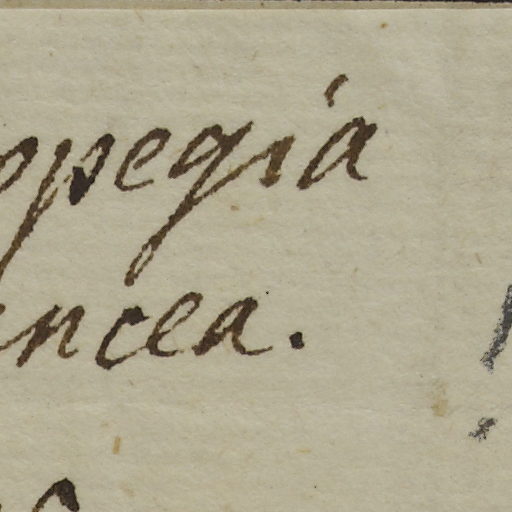 opegia
encea.
!